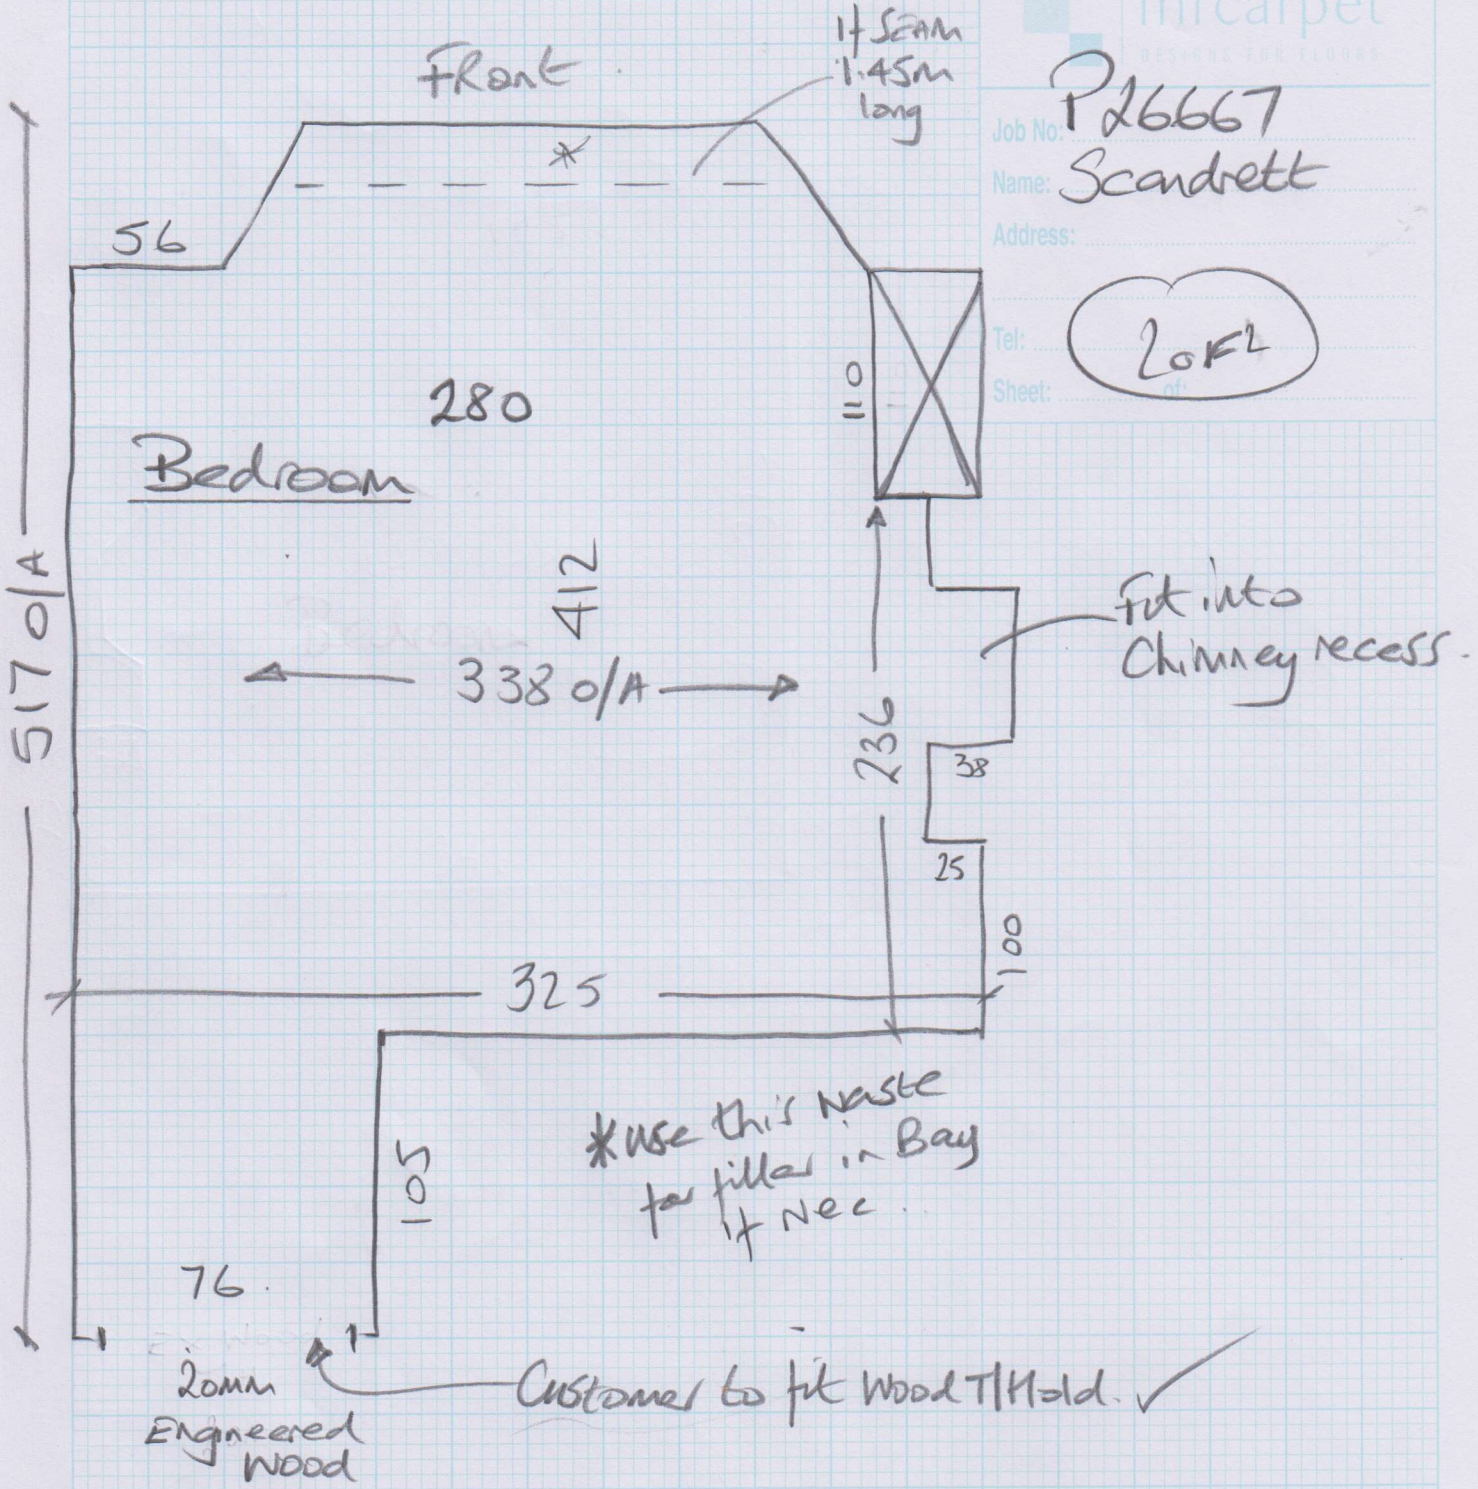 mrcarpet
DESIGNS FOR FLOORS
Job No: P26667
Name: Scandrett
Address:
Tel:
Sheet: of:
2 OF 2
Front
*
If SEAM
1.45m
long
56
280
110
Bedroom
517 O/A
412
338 O/A
236
Fit into
Chimney recess.
38
25
100
325
105
*use this waste
for filler in Bay
if Nec.
76
20mm
Engineered
Wood
Customer to fit Wood T/Hold. ✓